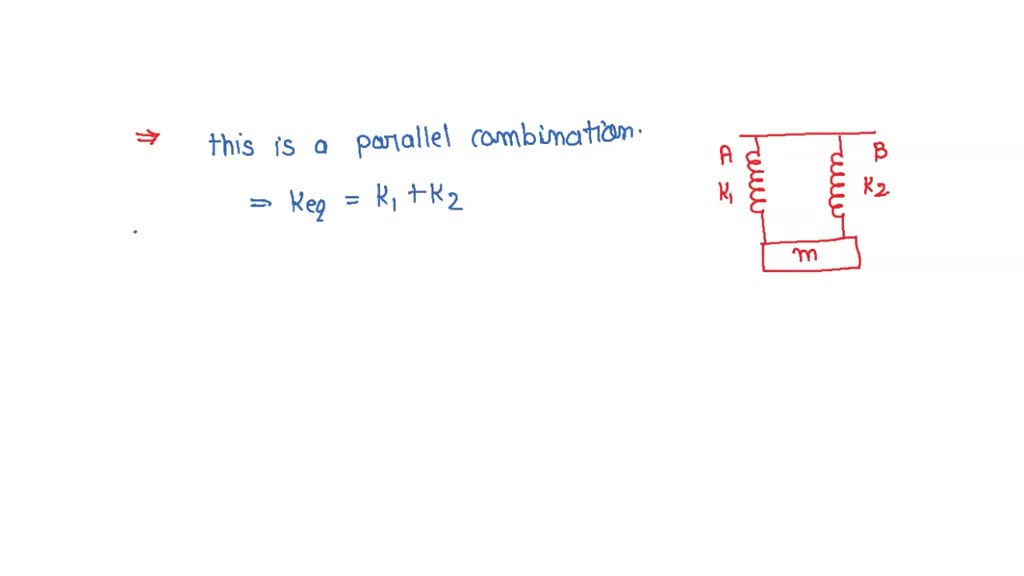 ⇒ this is a parallel combination.
⇒ Keq = K1 + K2
A B
K1 K2
m